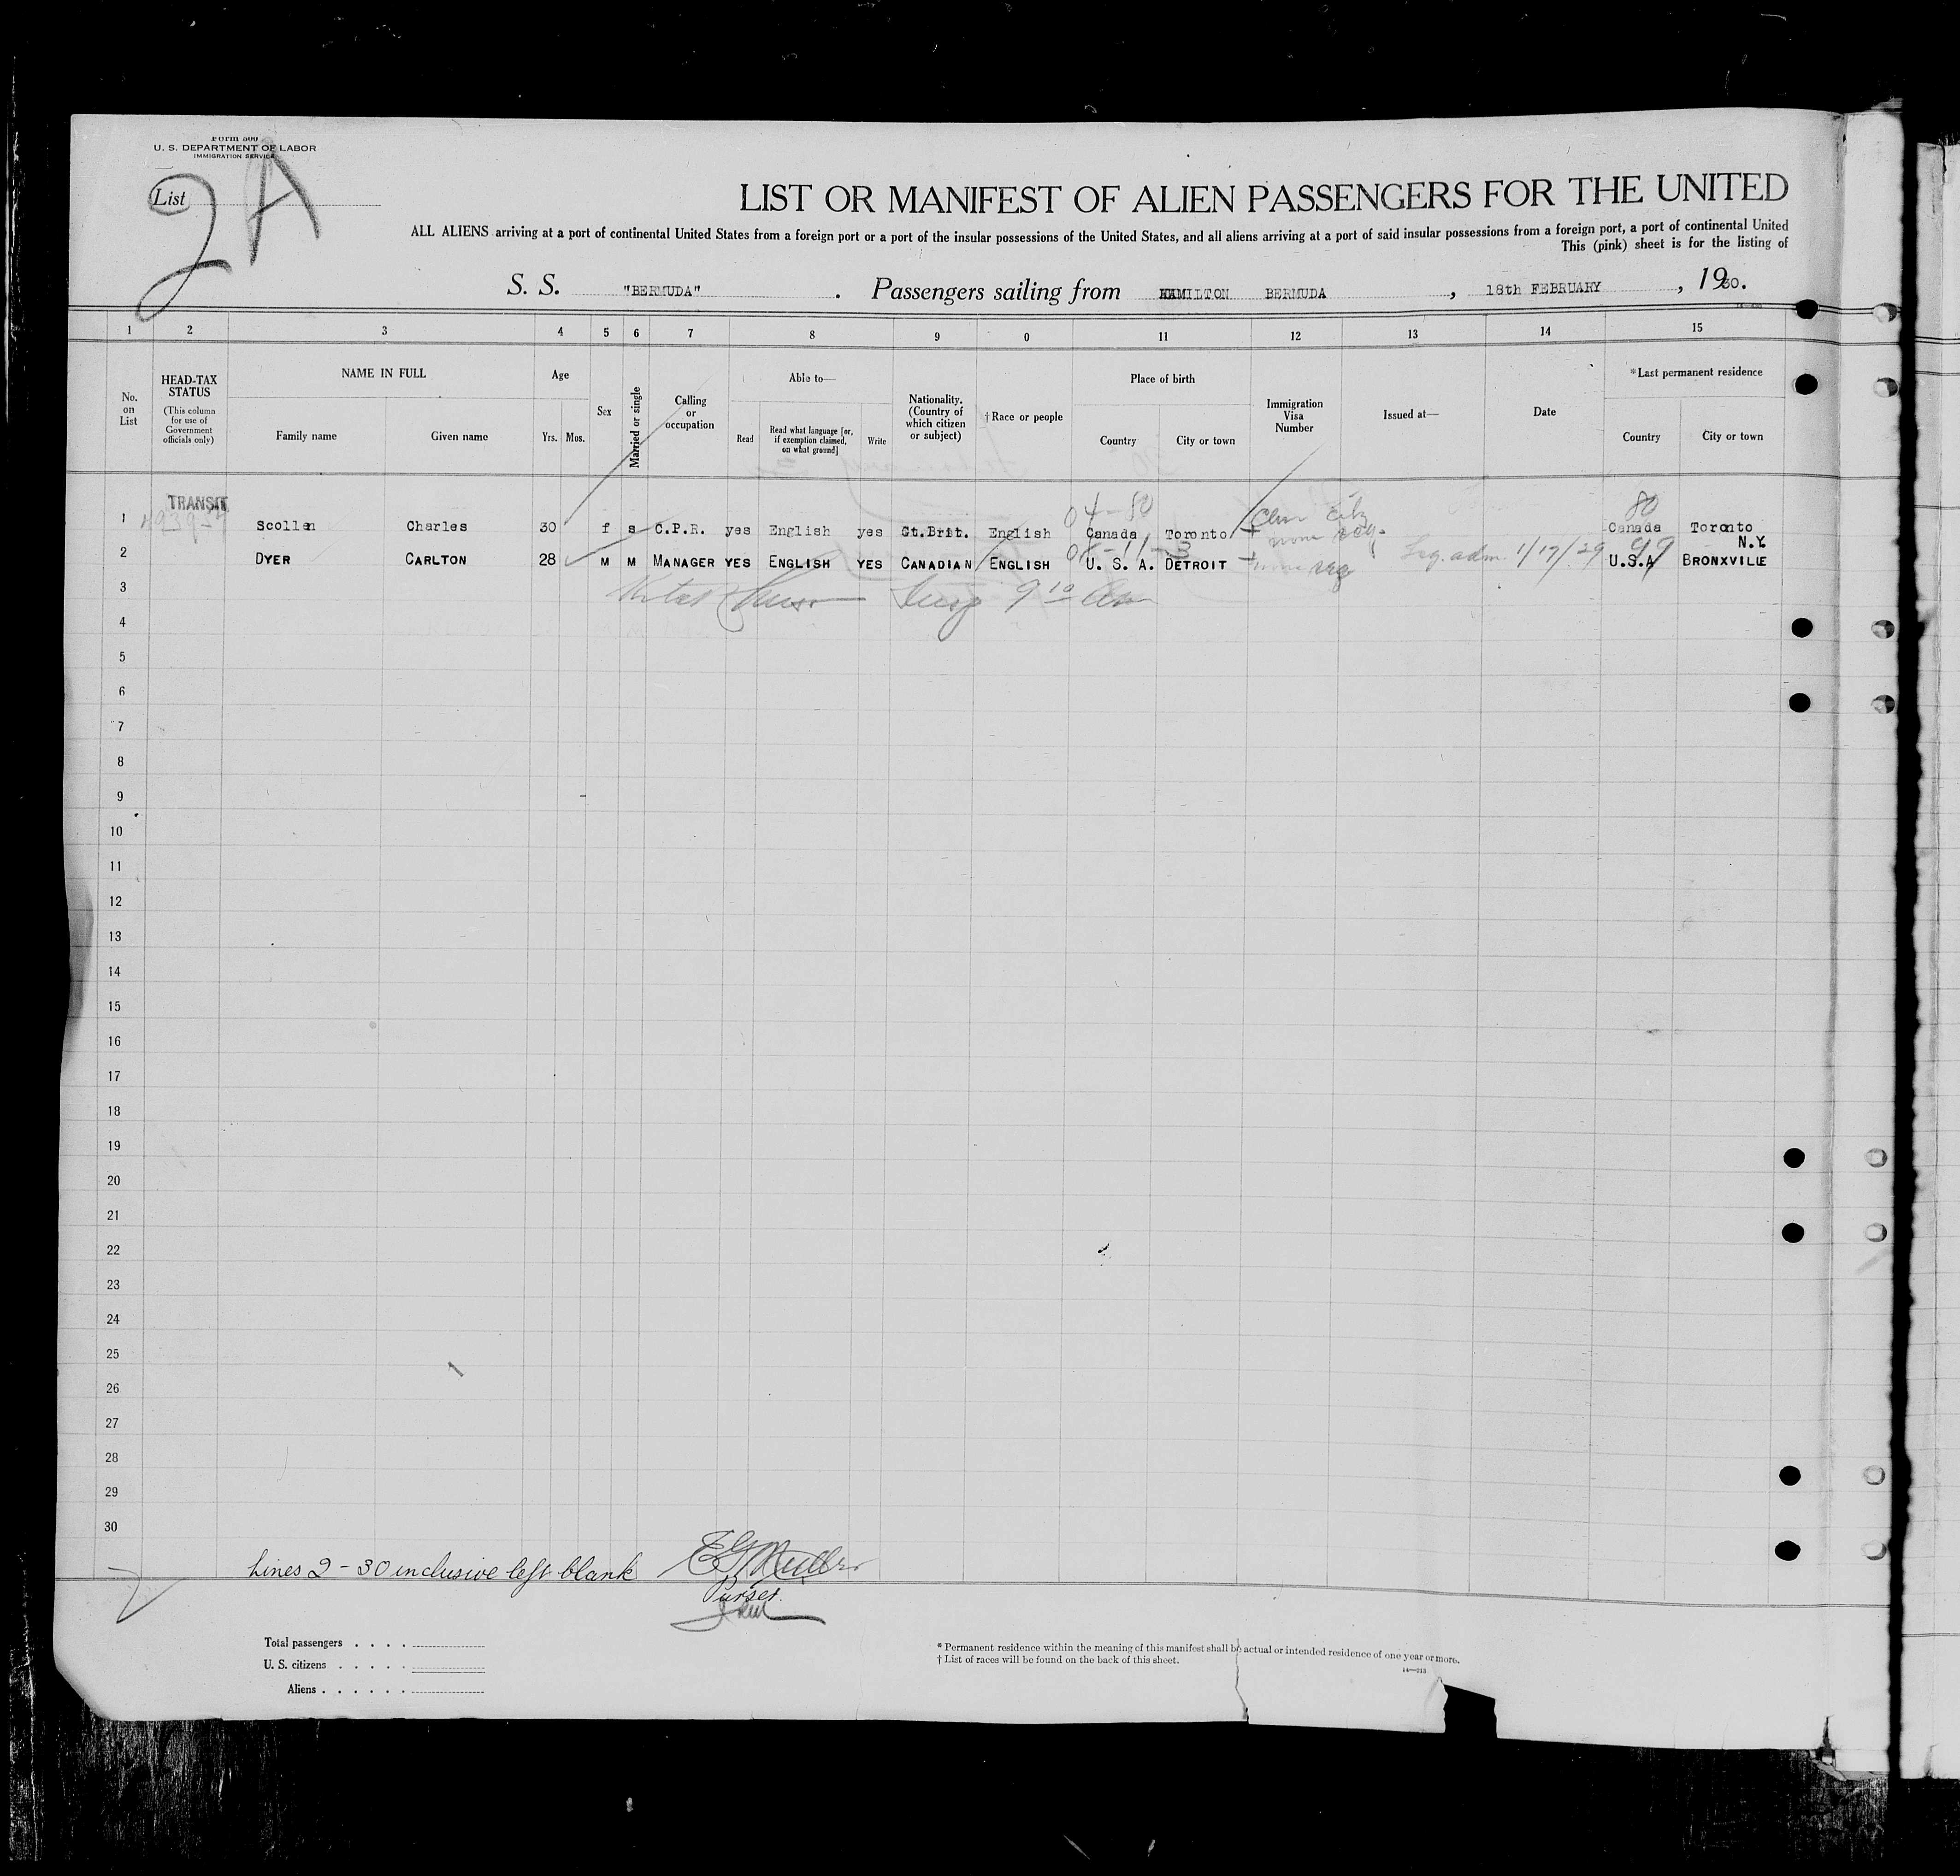 Form 500
U. S. DEPARTMENT OF LABOR
IMMIGRATION SERVICE
List 2A
LIST OR MANIFEST OF ALIEN PASSENGERS FOR THE UNITED
ALL ALIENS arriving at a port of continental United States from a foreign port or a port of the insular possessions of the United States, and all aliens arriving at a port of said insular possessions from a foreign port, a port of continental United
This (pink) sheet is for the listing of
S. S. "BERMUDA". Passengers sailing from HAMILTON BERMUDA, 18th FEBRUARY, 1930.
1 2 3 4 5 6 7 8 9 0 11 12 13 14 15
No. on List
HEAD-TAX STATUS
(This column for use of Government officials only)
NAME IN FULL
Family name Given name
Age
Yrs. Mos.
Sex
Married or single
Calling or occupation
Able to—
Read
Read what language [or, if exemption claimed, on what ground]
Write
Nationality. (Country of which citizen or subject)
† Race or people
Place of birth
Country City or town
Immigration Visa Number
Issued at—
Date
* Last permanent residence
Country City or town
TRANSIT
04-80 80
1 Scollen Charles 30 f s C.P.R. yes English yes Gt.Brit. English Canada Toronto Canada Toronto
N.Y.
2 DYER CARLTON 28 M M MANAGER YES ENGLISH YES CANADIAN ENGLISH U. S. A. DETROIT adm. 1/17/29 U.S.A BRONXVILLE
3
4
5
6
7
8
9
10
11
12
13
14
15
16
17
18
19
20
21
22
23
24
25
26
27
28
29
30
Lines 2-30 inclusive left blank
Purser.
Total passengers . . . .
U. S. citizens . . . . .
Aliens . . . . . .
* Permanent residence within the meaning of this manifest shall be actual or intended residence of one year or more.
† List of races will be found on the back of this sheet.